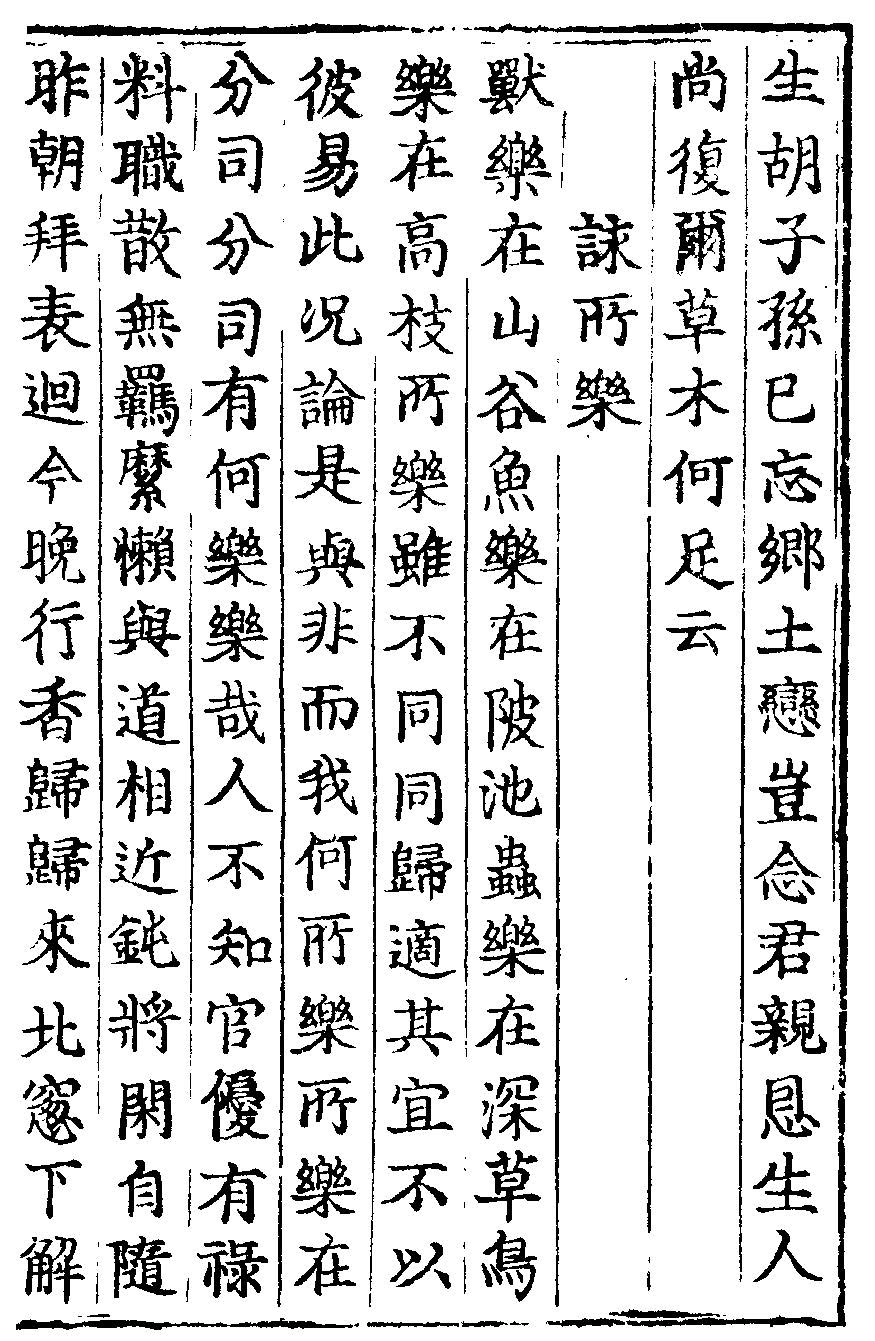 生胡子孫已忘鄉土戀豈念君親恩生人
尚復爾草木何足云
詠所樂
獸樂在山谷魚樂在陂池蟲樂在深草鳥
樂在高枝所樂雖不同同歸適其宜不以
彼易此况論是與非而我何所樂所樂在
分司分司有何樂樂哉人不知官優有祿
料職散無羈縻懶與道相近鈍將閑自隨
昨朝拜表迴今晚行香歸歸來北窻下解